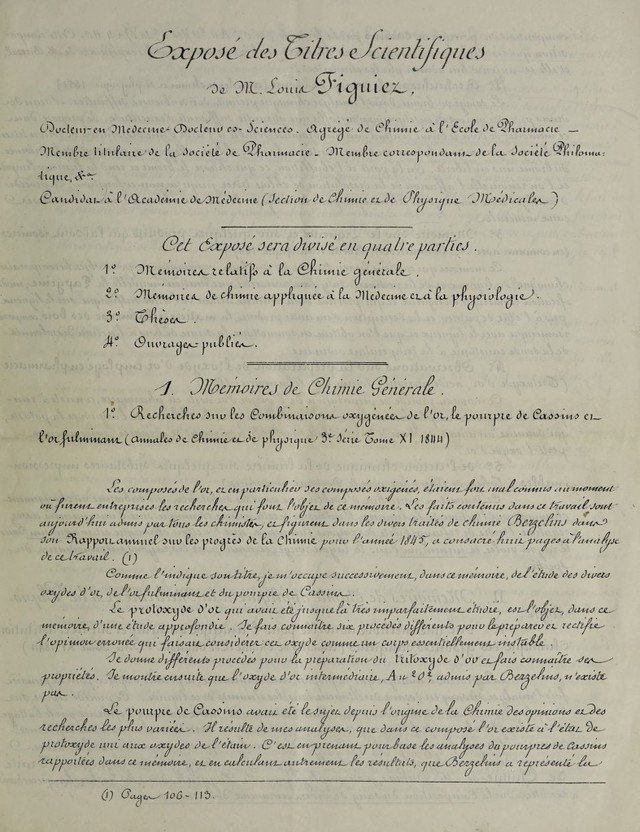 Exposé des Titres Scientifiques
de M. Louis Figuier,
Docteur en Médecine. Docteur ès-Sciences. Agrégé de Chimie à l'École de Pharmacie _
Membre titulaire de la Société de Pharmacie _ Membre correspondant de la Société Philoma-
tique, &a.
Candidat à l'Académie de Médecine (Section de Chimie et de Physique Médicales)
Cet Exposé sera divisé en quatre parties.
1º Mémoires relatifs à la Chimie générale.
2º Mémoires de chimie appliquée à la Médecine et à la physiologie.
3º Thèses.
4º Ouvrages publiés.
1. Mémoires de Chimie Générale.
1º Recherches sur les Combinaisons oxygénées de l'or, le pourpre de Cassius et
l'or fulminant (annales de Chimie et de physique 3e Série Tome XI 1844)
Les composés de l'or, et en particulier ses composés oxigénés, étaient fort mal connus au moment
où furent entreprises les recherches qui font l'objet de ce mémoire. Les faits contenus dans ce travail sont
aujourd'hui admis par tous les chimistes, et figurent dans les divers traités de chimie Berzelius dans
son Rapport annuel sur les progrès de la Chimie pour l'année 1845, a consacré huit pages à l'analyse
de ce travail. (1)
Comme l'indique son titre, je m'occupe successivement, dans ce mémoire, de l'étude des divers
oxydes d'or, de l'or fulminant et du pourpre de Cassius.
Le protoxyde d'or qui avait été jusque là très imparfaitement étudié, est l'objet, dans ce
mémoire, d'une étude approfondie. Je fais connaître six procédés différents pour le préparer et rectifie
l'opinion erronée qui faisait considérer cet oxyde comme un corps essentiellement instable.
Je donne différents procédés pour la préparation du tritoxyde d'or et fais connaître ses
propriétés. Je montre ensuite que l'oxyde d'or intermédiaire, Au²O², admis par Berzelius, n'existe
pas.
Le pourpre de Cassius avait été le sujet depuis l'origine de la Chimie des opinions et des
recherches les plus variées. Il résulte de mes analyses, que dans ce composé l'or existe à l'état de
protoxyde uni aux oxydes de l'étain. C'est en prenant pour base les analyses du pourpres de Cassius
rapportées dans ce mémoire, et en calculant autrement les résultats, que Berzelius a représenté la
(1) Pages 106-113.